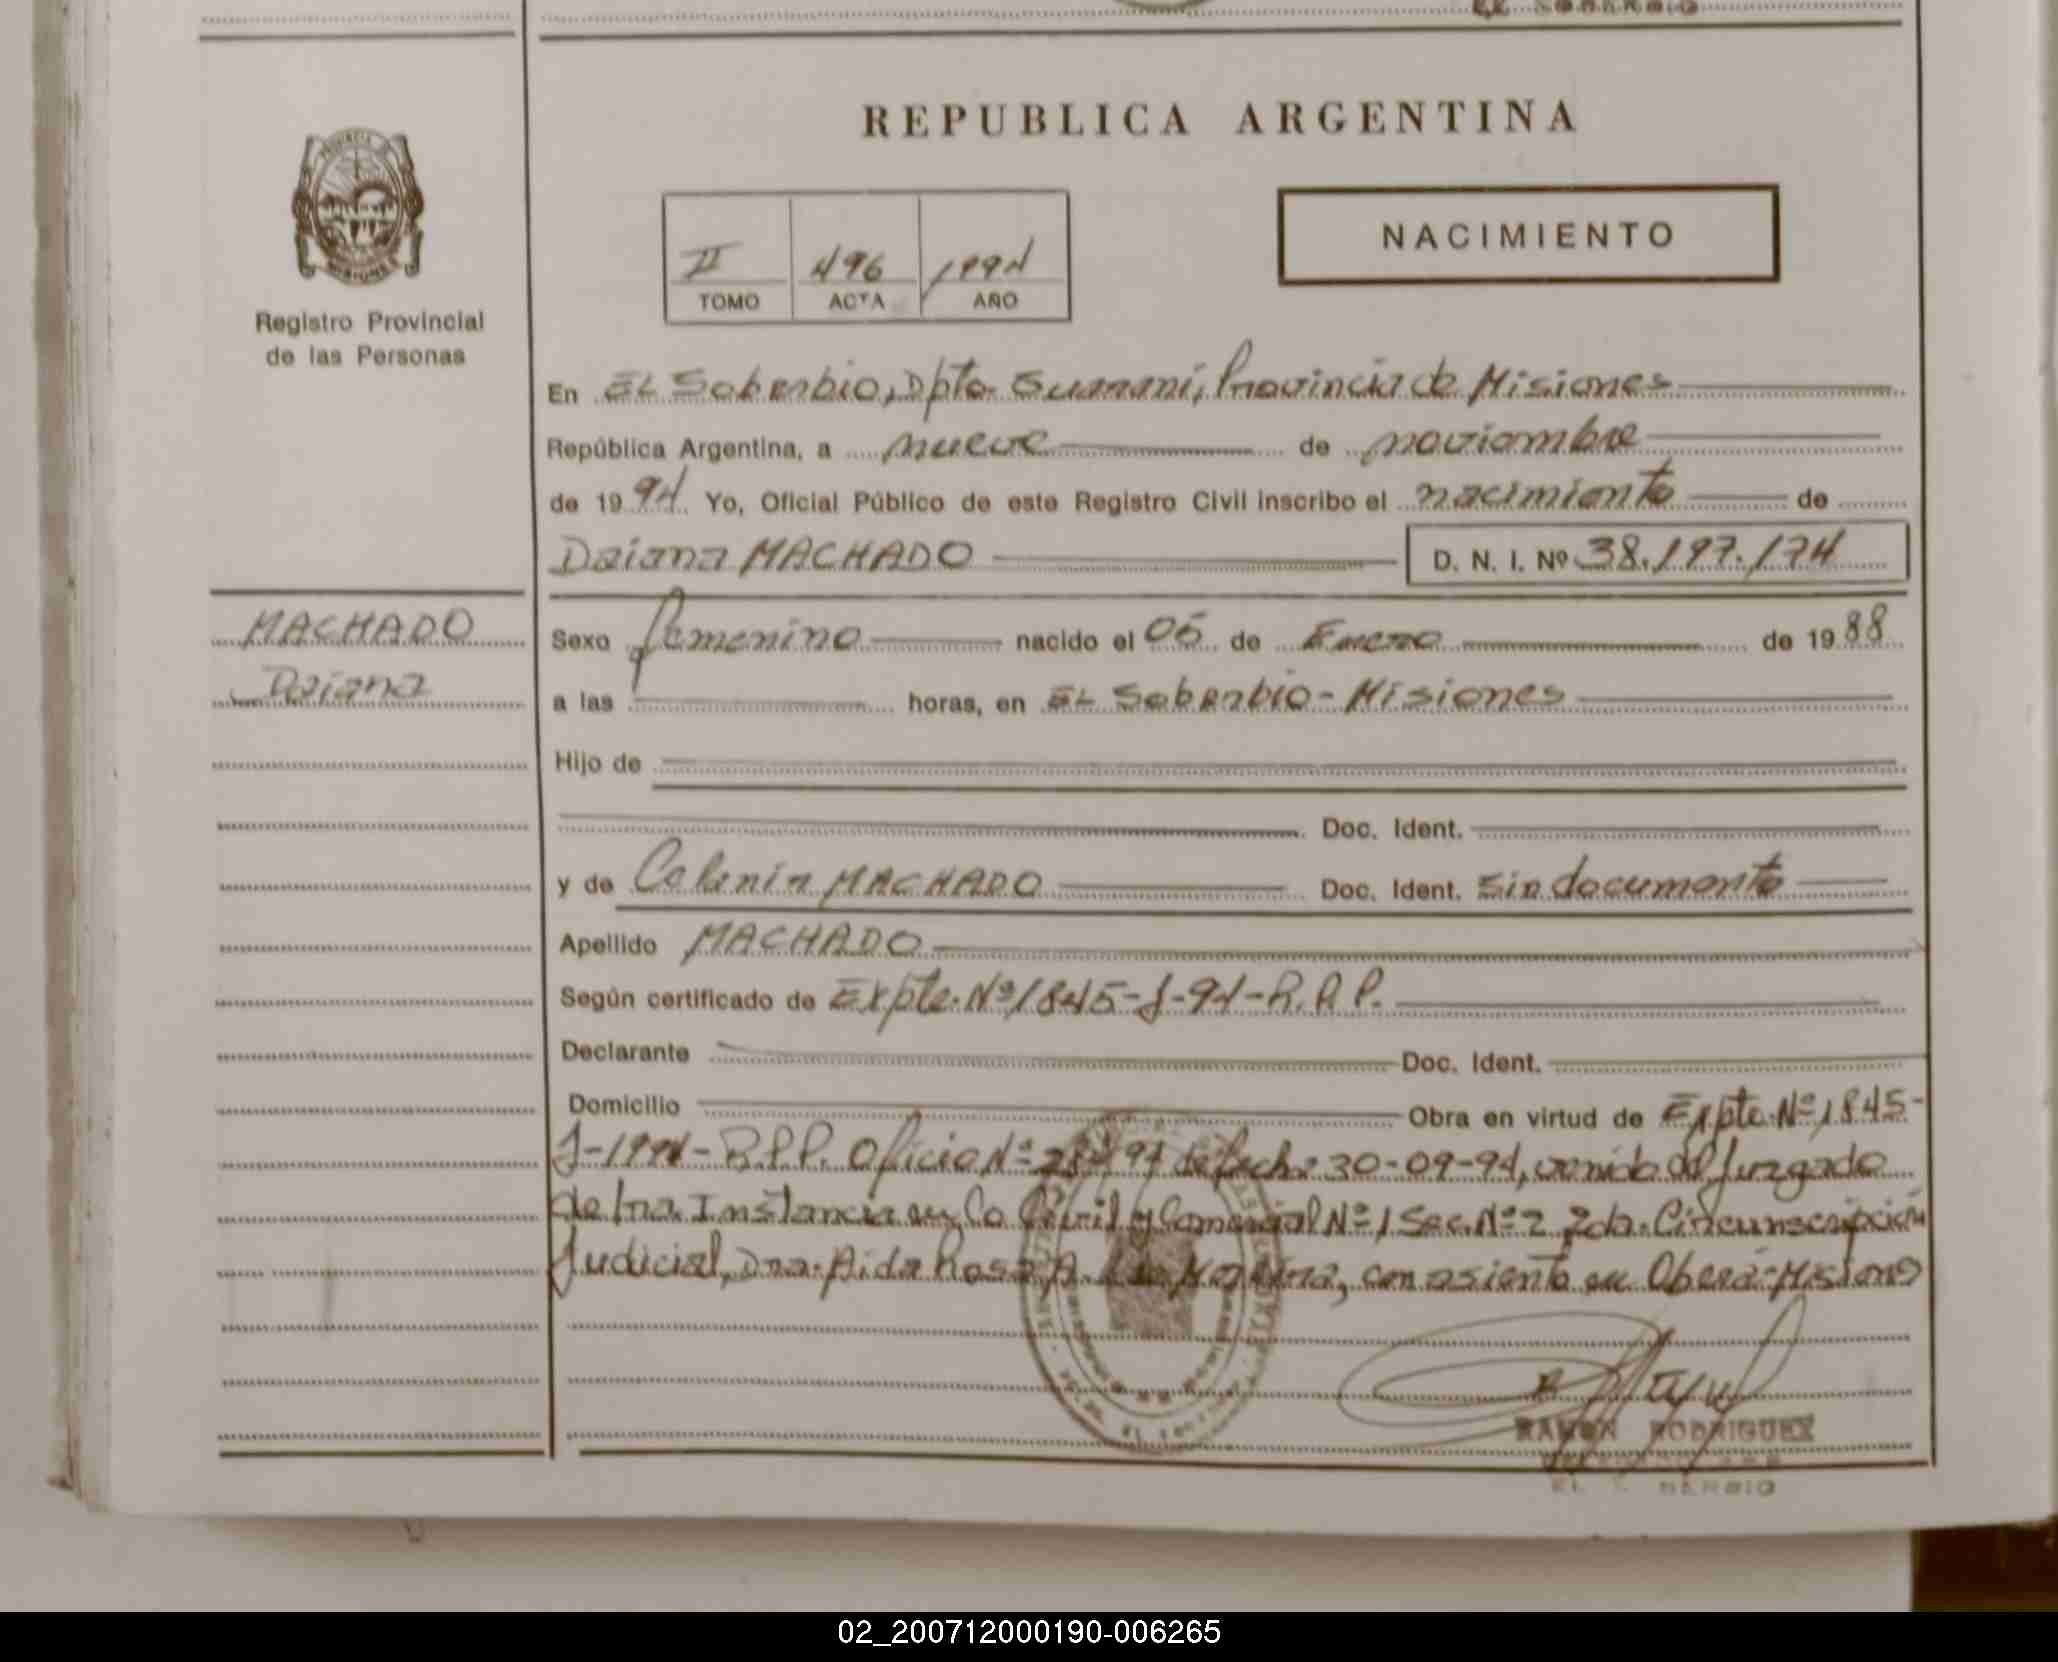 REPUBLICA ARGENTINA
NACIMIENTO
II 496 1994
TOMO ACTA AÑO
PROVINCIA DE
MISIONES
Registro Provincial
de las Personas
En EL Soberbio, Dpto. Guaraní, Provincia de Misiones
República Argentina, a nueve de noviembre
de 1994 Yo, Oficial Público de este Registro Civil inscribo el nacimiento de
Daiana MACHADO D. N. I. Nº 38.197.174
MACHADO
Daiana
Sexo femenino nacido el 05 de Enero de 1988
a las horas, en EL Soberbio - Misiones
Hijo de
Doc. Ident.
y de MACHADO Doc. Ident. Sin documento
Apellido MACHADO
Según certificado de Expte. Nº 1845-J-94-R.P.P.
Declarante Doc. Ident.
Domicilio Obra en virtud de Expte. Nº 1845-
J-1994-R.P.P. Oficio Nº 94 de fecha 30-09-94, venido del Juzgado
de 1ra. Instancia en Lo Civil y Comercial Nº 1 Sec. Nº 2 2da. Circunscripción
Judicial, Dra. Aida Rosa A. con asiento en Oberá-Misiones
RAMON RODRIGUEZ
02_200712000190-006265